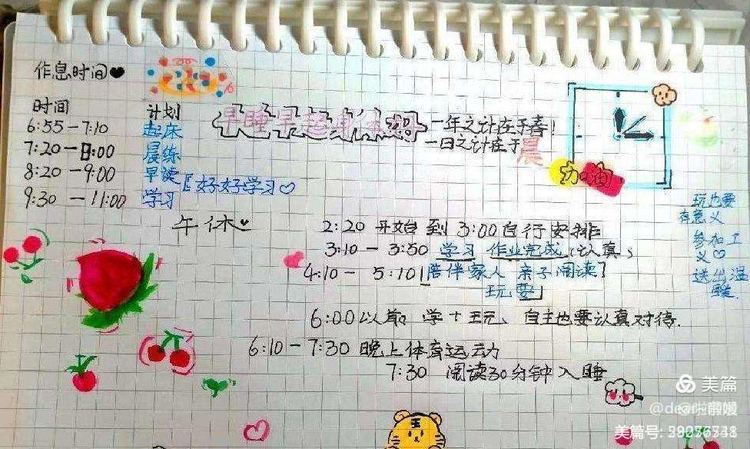 作息时间
时间 计划
6:55-7:10 起床
7:20-8:00 晨练
8:20-9:00 早读
9:30-11:00 学习
[好好学习
早睡早起身体好
一年之计在于春!
一日之计在于晨
加油
午休
2:20 开始 到 3:00 自行安排
3:10-3:50 学习 作业完成(认真)
4:10-5:10 [陪伴家人 亲子阅读
玩耍]
6:00以前, 学+玩、自主也要认真对待.
6:10-7:30 晚上体育运动
7:30 阅读30分钟入睡
玩也要
有意义
参加工
义
送出温
暖
美篇
美篇号: